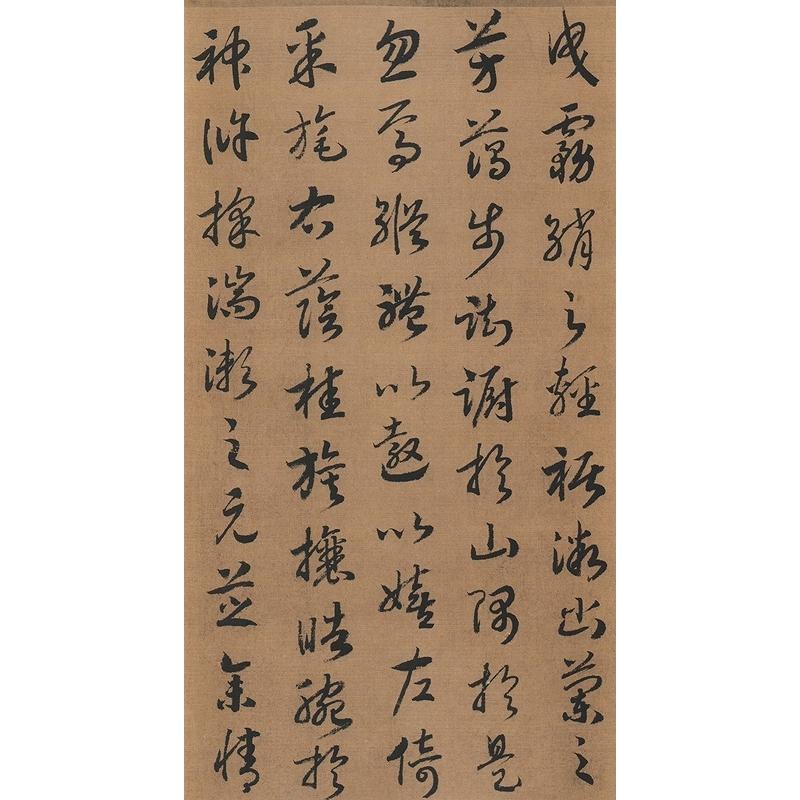 曳霧綃之輕裾微幽蘭之
芳藹步踟躕於山隅於是
忽焉縱體以遨以嬉左倚
采旄右蔭桂旗攘皓腕於
神滸採湍瀨之元芝余情